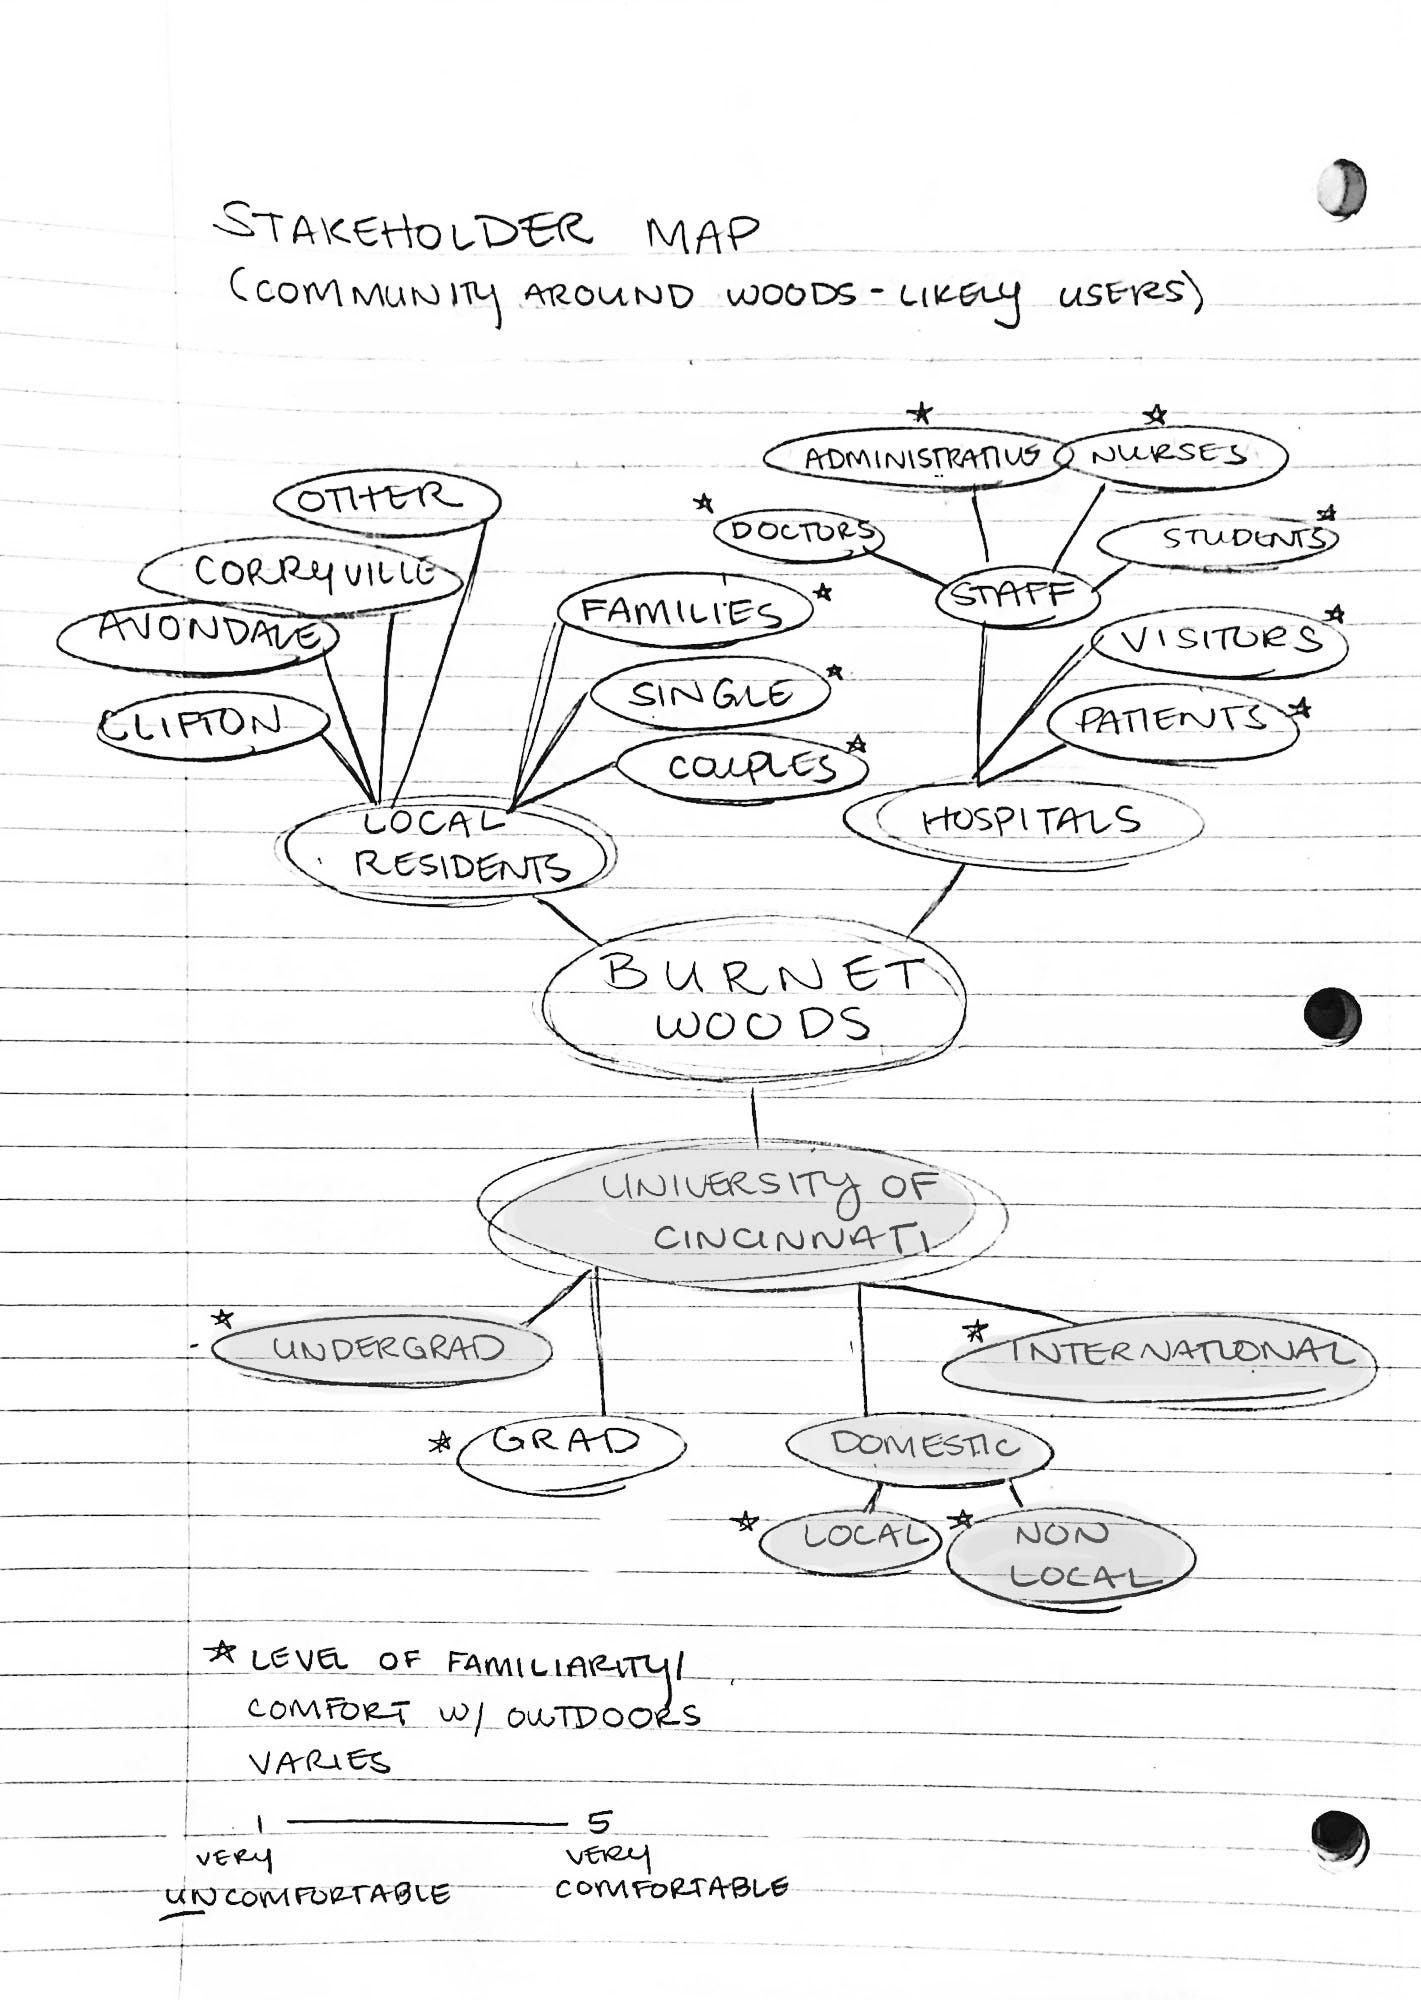 STAKEHOLDER MAP
(COMMUNITY AROUND WOODS - LIKELY USERS)
★ ★
ADMINISTRATIVE NURSES
OTHER
★ DOCTORS
STUDENTS ★
CORRYVILLE
STAFF
FAMILIES ★
AVONDALE
VISITORS ★
SINGLE ★
CLIFTON
PATIENTS ★
COUPLES ★
LOCAL
RESIDENTS
HOSPITALS
BURNET
WOODS
UNIVERSITY OF
CINCINNATI
★ UNDERGRAD
★ INTERNATIONAL
★ GRAD
DOMESTIC
★ LOCAL
★ NON
LOCAL
★ LEVEL OF FAMILIARITY/
COMFORT W/ OUTDOORS
VARIES
1 5
VERY
UNCOMFORTABLE
VERY
COMFORTABLE